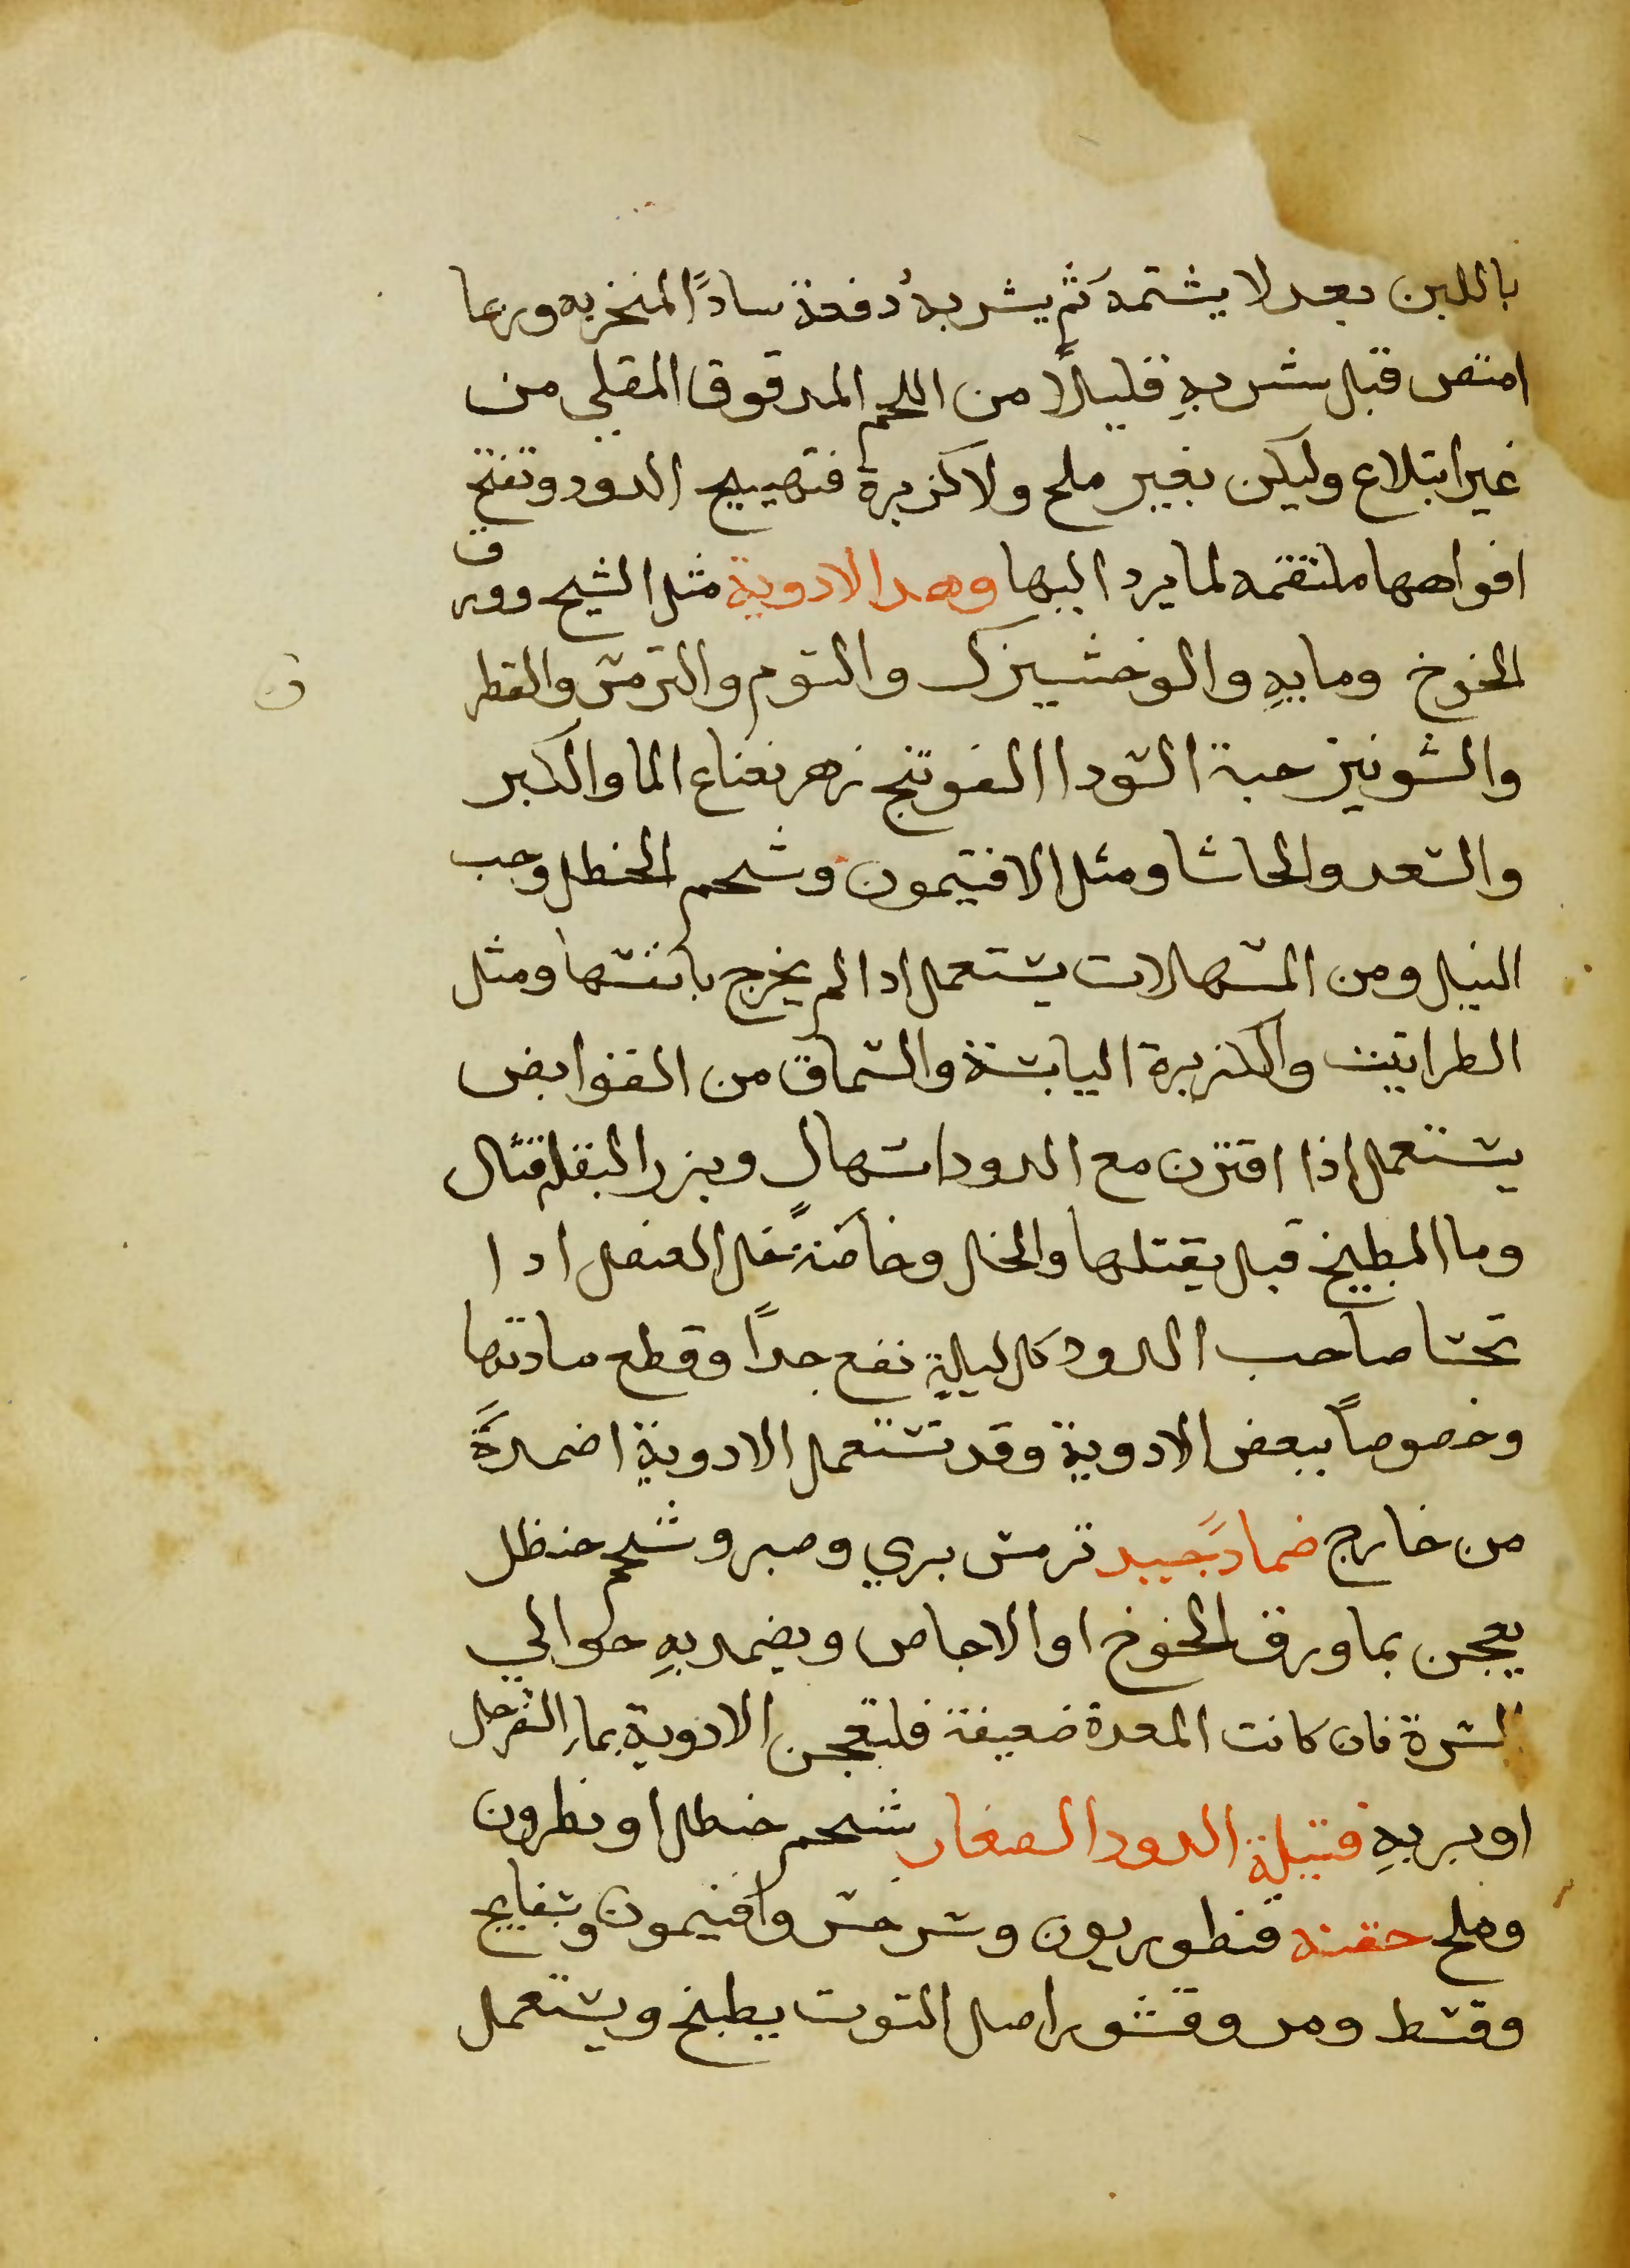 باللبن بعد لا يشتمه ثم يشربه دفعة سادًا المنخريه وربما
امتص قبل شربهِ قليلًا من اللحم المدقوق المقلي من
غير ابتلاع وليكن بغير ملح ولا كزبرة فتهييج الدود وتفتح
افواهها ملتقمه لما يرد اليها وهذا الادوية مثل الشيح وورق
الخوخ ومايهِ والوخشيزك والتوم والترمس والقطر
والشونيز حبة السودا الفوتنج زهر نعناع الما والكبر
والسعد والحاشا ومثل الافتيمون وشحم الحنظل وحب
النيل ومن المسهلات يستعمل ادا لم يخرج بانفسها ومثل
الطراتيت والكزبرة اليابسة والسماق من القوابض
يستعمل اذا اقترن مع الدود اسهال وبزر البقله قتال
وما البطيخ قبل يقتلها والخل وخاصةً خل العنصل ادا
تحسا صاحب الدود كل ليلةٍ نفع جدًا وقطع مادتها
وخصوصاً ببعض الادوية وقد تستعمل الادوية اضمدةً
من خارج ضمادً جيد ترمس بري وصبر وشحم حنظل
يعجن بما ورق الخوخ او الاجاص ويضمد بهِ حوالي
السرة فان كانت المعدة ضعيفة فلتعجن الادوية بماِ السفرجل
او بربهِ فتيلة الدود الصغار شحم حنظل او نطرون
وملح حقنه قنطوريون وسرخس وافتيمون وبسفايج
وقسط ومر وقشور اصل التوت يطبخ ويستعمل
ن